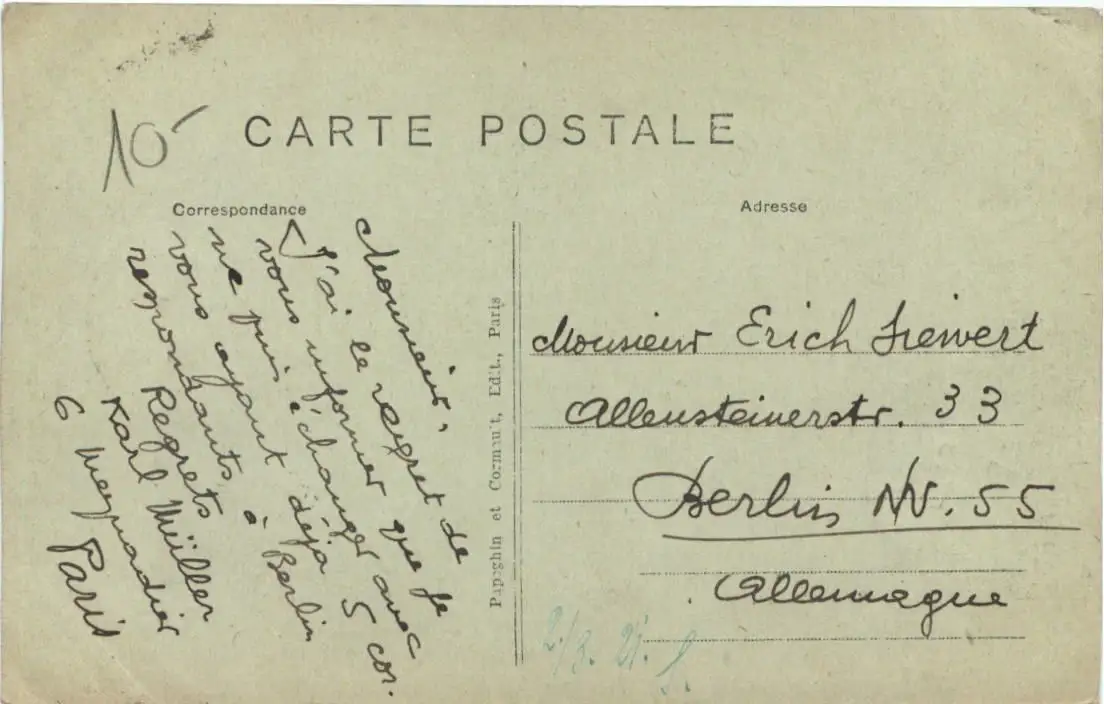 10
CARTE POSTALE
Correspondance
Adresse
Monsieur,
J'ai le regret de
vous informer que je
ne puis échanger avec
vous ayant déjà 5 cor-
respondants à Berlin
Regrets
Karl Müller
6
Paris
Papeghin et Cormault, Edit., Paris
Monsieur Erich Siewert
Allensteinerstr. 33
Berlin NO. 55
Allemagne
2./3. 21.